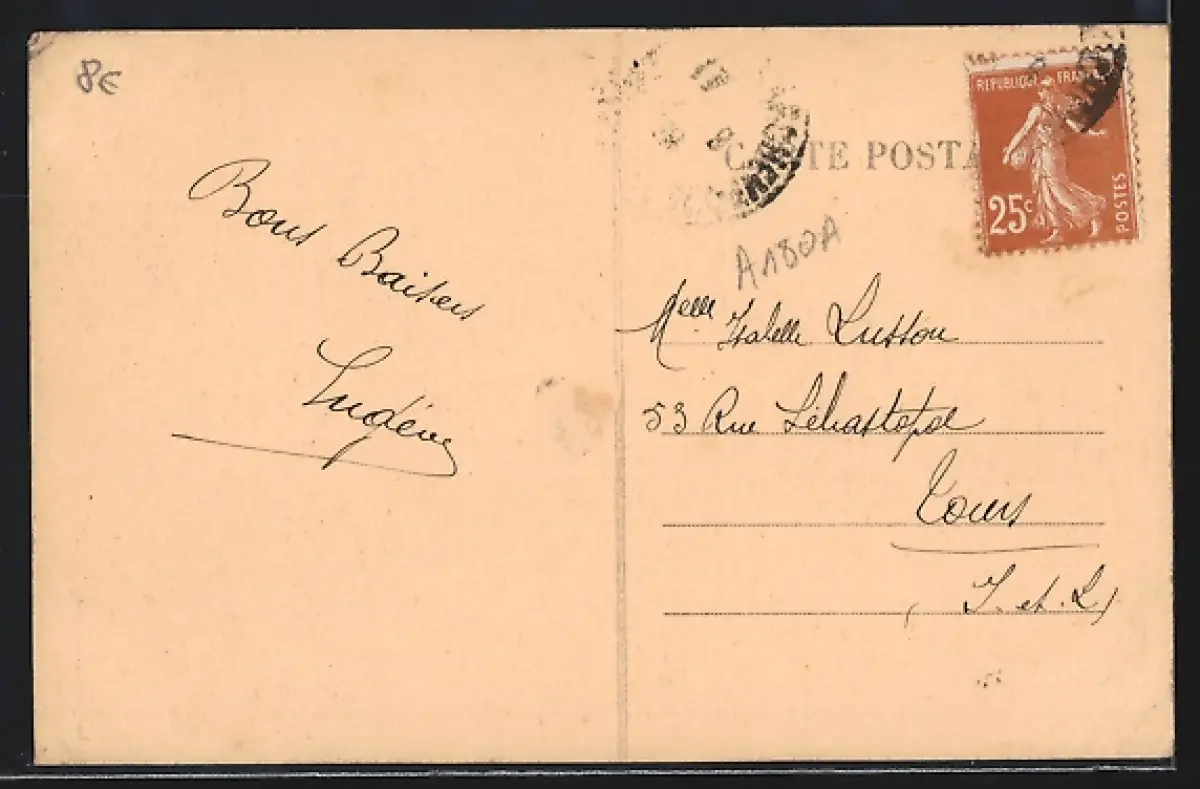 8€
Bons Baisers
CARTE POSTA
REPUBLIQUE FRANC
25c
POSTES
A180A
Melle Isabelle Lusson
53 Rue Sébastopol
Tours
(I. et. L)